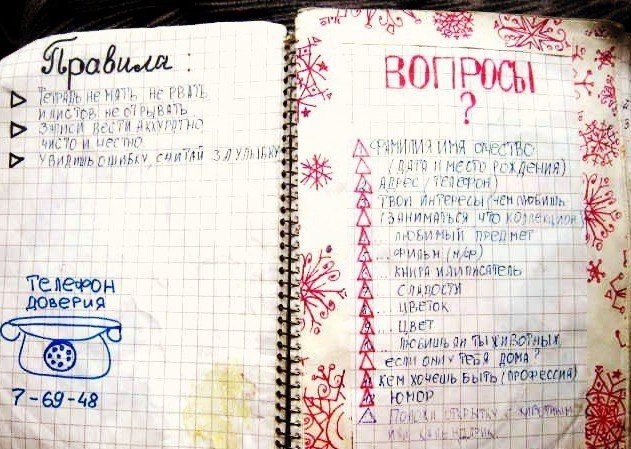 Правила :
ТЕТРАДЬ НЕ МЯТЬ, НЕ РВАТЬ
И ЛИСТОВ НЕ ОТРЫВАТЬ
ЗАПИСИ ВЕСТИ АККУРАТНО
ЧИСТО И ЧЕСТНО
УВИДИШЬ ОШИБКУ, СЧИТАЙ ЗА УЛЫБКУ
ТЕЛЕФОН
ДОВЕРИЯ
7-69-48
ВОПРОСЫ
?
ФАМИЛИЯ ИМЯ ОЧЕСТВО
(ДАТА И МЕСТО РОЖДЕНИЯ)
АДРЕС (ТЕЛЕФОН)
ТВОИ ИНТЕРЕСЫ (ЧЕМ ЛЮБИШЬ
ЗАНИМАТЬСЯ ЧТО КОЛЛЕКЦИОН
ЛЮБИМЫЙ ПРЕДМЕТ
... ФИЛЬМ (М/Ф)
... КНИГА ИЛИ ПИСАТЕЛЬ
СЛАДОСТИ
... ЦВЕТОК
... ЦВЕТ
... ЛЮБИШЬ ЛИ ТЫ ЖИВОТНЫХ,
ЕСЛИ ОНИ У ТЕБЯ ДОМА?
КЕМ ХОЧЕШЬ БЫТЬ (ПРОФЕССИЯ)
ЮМОР
ОТКРЫТКУ С
ИЛИ КАЛЕНДАРИК